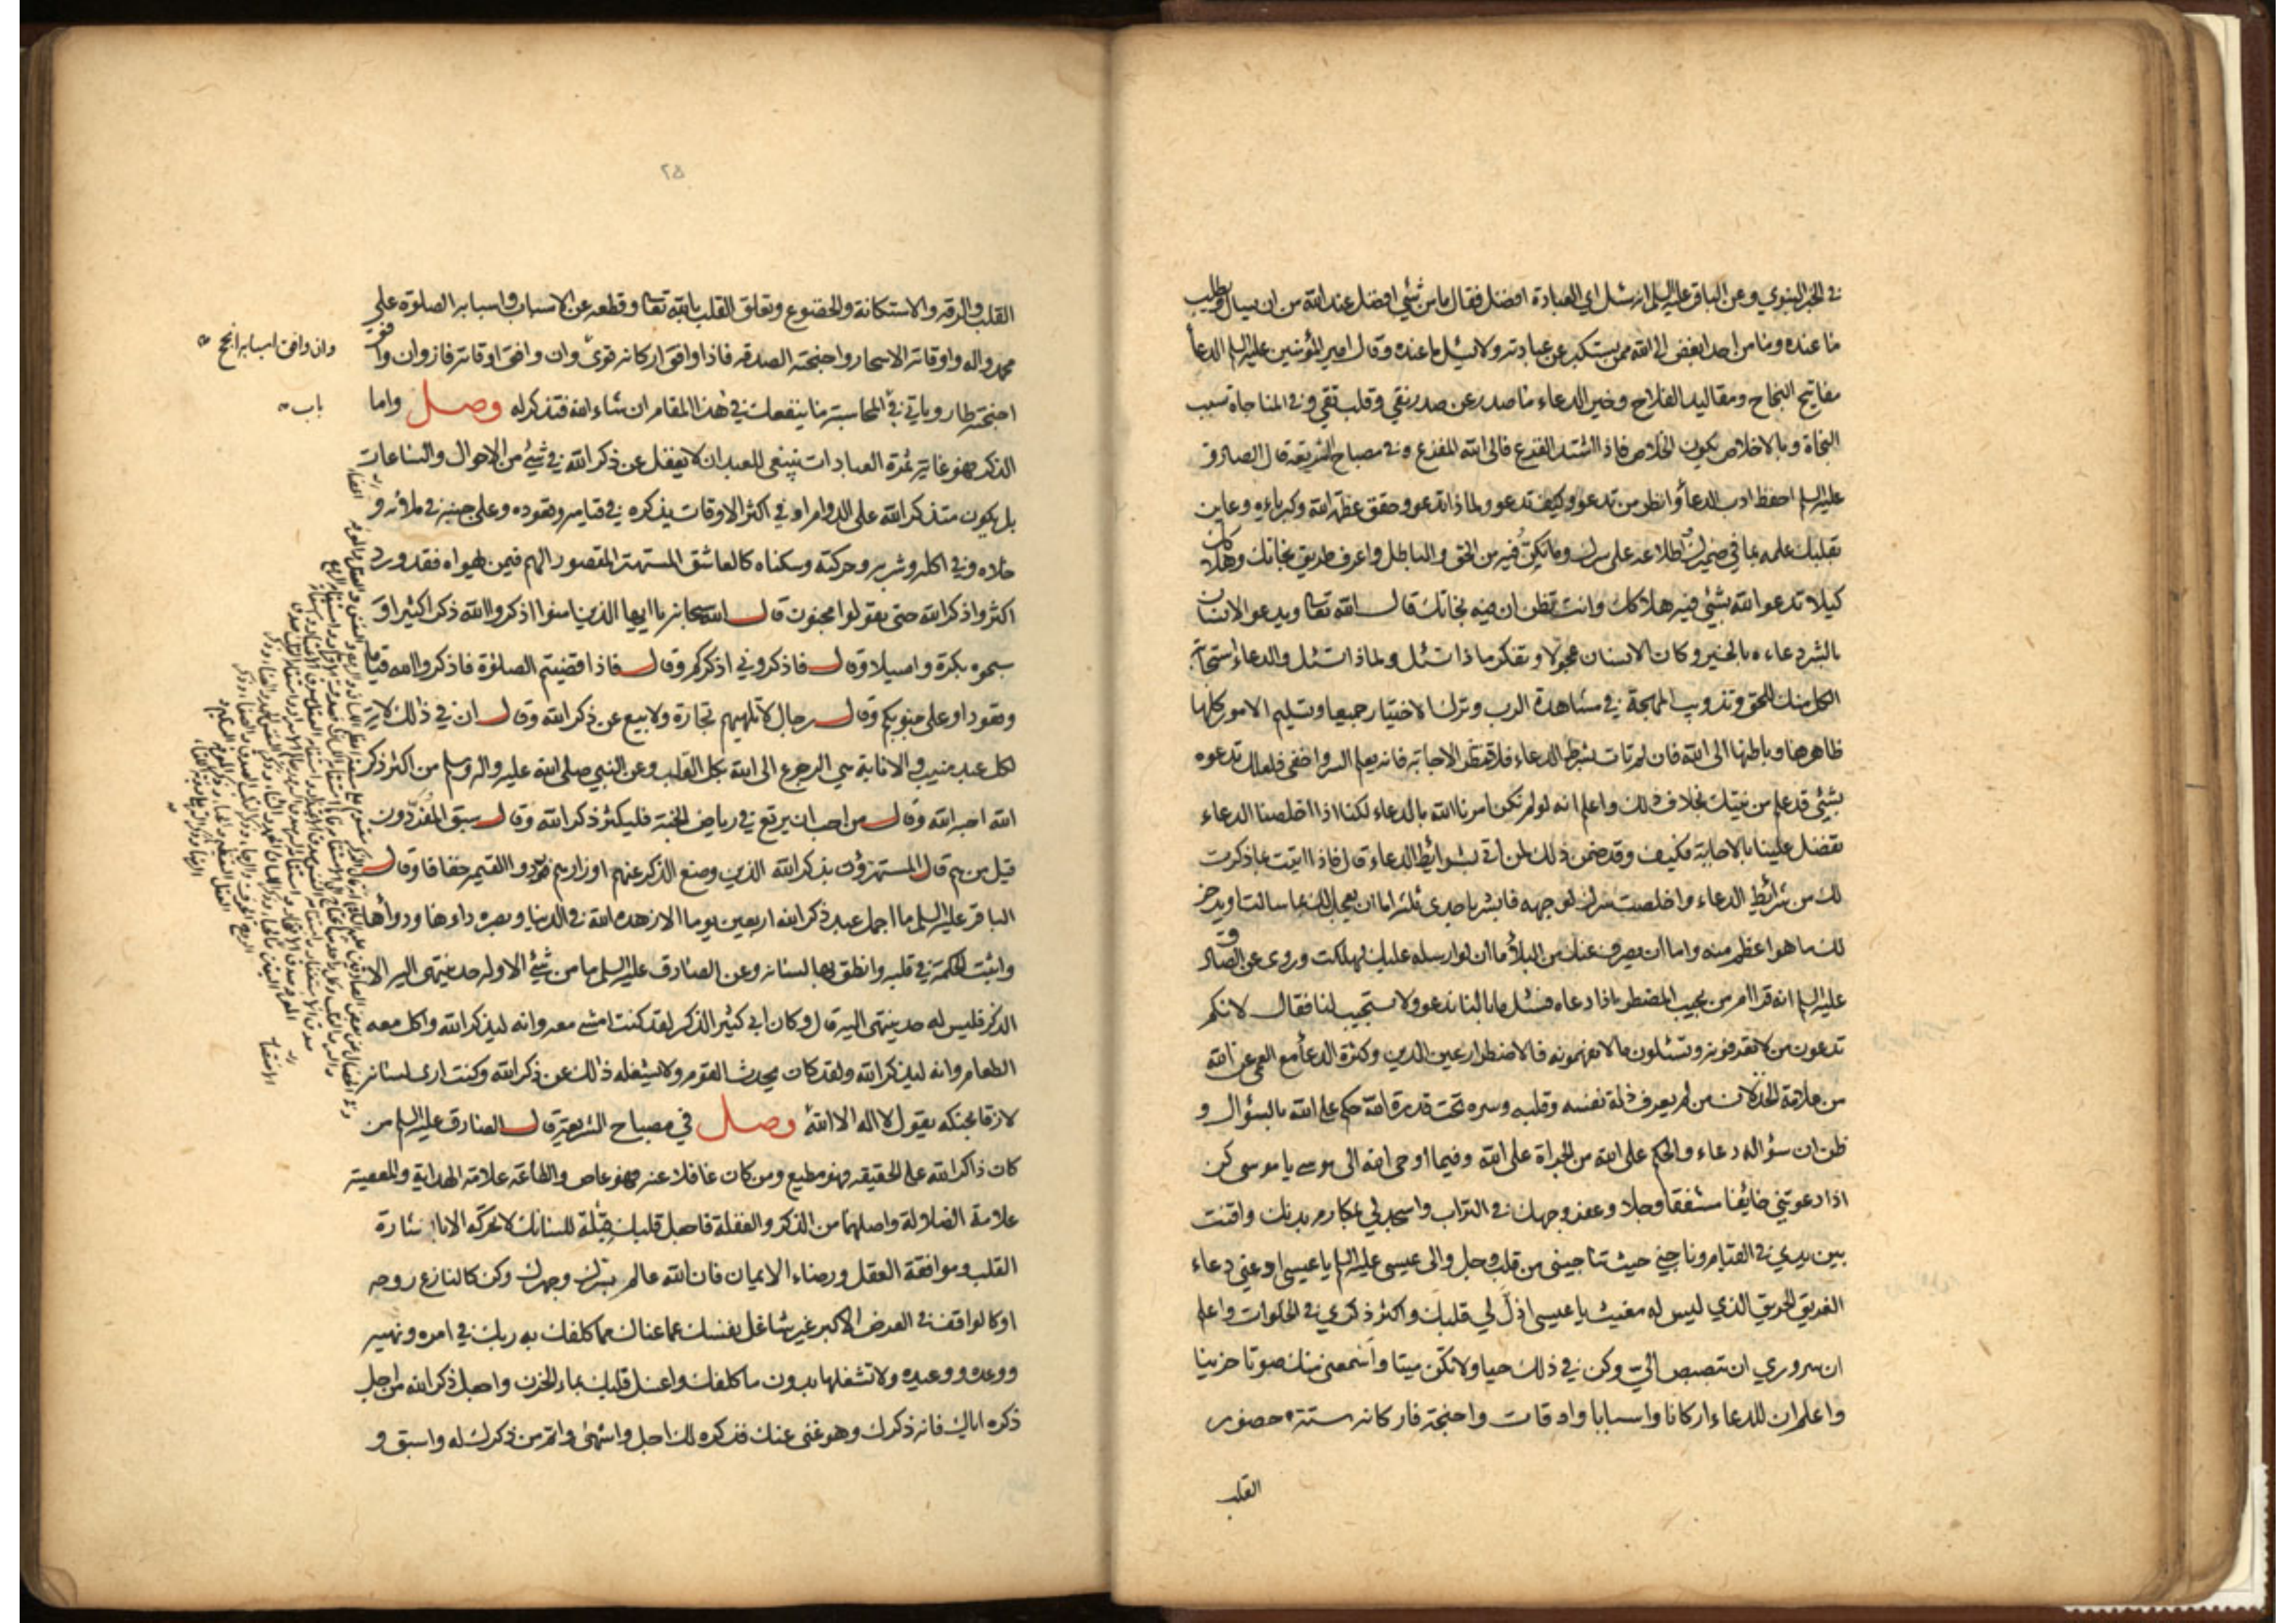 في الخبر النبوي وعن الباقر عليه السلم انه سئل اي العبادة افضل فقال ما من شئي افضل عند الله من ان يسال ويطلب
مما عنده وما من احد ابغض الى الله ممن يستكبر عن عبادته ولا يسئل ما عنده وقال امير المؤمنين عليه السلم الدعأ
مفاتيح النجاح ومقاليد الفلاح وخير الدعاء ما صدر عن صدر نقي وقلب تقي وفي المناجاة سبب
النجاة وبالاخلاص يكون الخلاص فاذا اشتد الفزع فالى الله المفزع وفي مصباح الشريعة قال الصادق
عليه السلم احفظ ادب الدعأ وانظر من تدعو وكيف تدعو ولماذا تدعو وحقق عظمة الله وكبرياءه وعاين
بقلبك علمه بما في ضميرك واطلاعه على سرك وما يكن فيه من الحق والباطل واعرف طريق نجاتك وهلاكك
كيلا تدعو الله بشئي فيه هلاكك وانت تظن ان فيه نجاتك قال الله تعا ويدعو الانسان
بالشر دعاءه بالخير وكان الانسان عجولا وتفكر ماذا تسئل ولماذا تسئل والدعاء استجابة
الكل منك للحق وتذويب المهجة في مشاهدة الرب وترك الاختيار جميعا وتسليم الامور كلها
ظاهرها وباطنها الى الله فان لم تات بشرط الدعاء فلا تنتظر الاجابة فانه يعلم السر واخفى فلعلك تدعوه
بشئي قد علم من نيتك بخلاف ذلك واعلم انه لو لم يكن امرنا الله بالدعاء لكنا اذا اخلصنا الدعاء
تفضل علينا بالاجابة فكيف وقد ضمن ذلك لمن اتى بشرائط الدعاء قال فاذا اتيت بما ذكرت
لك من شرائط الدعاء واخلصت سرك لوجهه فابشر باحدى ثلث اما ان يعجل لك بما سالت او يدخر
لك ما هو اعظم منه واما ان يصرف عنك من البلأ ما ان لو ارسله عليك لهلكت وروى عن الصادق
عليه السلم انه قرا امن يجيب المضطر اذا دعاه فسئل ما بالنا ندعو ولا يستجيب لنا فقال لانكم
تدعون من لا تعرفونه وتسئلون ما لا تفهمونه فالاضطرار عين الدين وكثرة الدعأ مع العمى عن الله
من علامة الخذلان من لم يعرف ذلة نفسه وقلبه وسره تحت قدرة الله حكم على الله بالسؤال و
ظن ان سؤاله دعاء والحكم على الله من الجراة على الله وفيما اوحى الله الى موسى يا موسى كن
اذا دعوتني خائفا مشفقا وجلا وعفر وجهك في التراب واسجد لي بمكارم بدنك واقنت
بين يدي في القيام وناجني حيث تناجيني من قلب وجل والى عيسى عليه السلم يا عيسى ادعني دعاء
الغريق الحريق الذي ليس له مغيث يا عيسى اذل لي قلبك واكثر ذكري في الخلوات واعلم
ان سروري ان تبصبص الي وكن في ذلك حيا ولا تكن ميتا واسمعني منك صوتا حزينا
واعلم ان للدعاء اركانا واسبابا واوقات واجنحة فاركانه ستة حضور
القلب
٢٥
القلب والرقة والاستكانة والخضوع وتعلق القلب بالله تعا وقطعه عن الاسباب واسبابه الصلوة على
محمد واله واوقاته الاسحار واجنحته الصدق فاذا وافق اركانه قوي وان وافق اوقاته فاز وان وافق
اجنحته طار وياتي في المحاسبة ما ينفعك في هذا المقام ان شاء الله فتذكر له وصل واما
الذكر فهو غاية ثمرة العبادات ينبغي للعبد ان لا يغفل عن ذكر الله في شيئ من الاحوال والساعات
بل يكون متذكر الله على الدوام او في اكثر الاوقات يذكره في قيامه وقعوده وعلى جنبه في ملأئه و
خلاه وفي اكله وشربه وحركته وسكناه كالعاشق المستهتر المقصور الهم فيمن يهواه فقد ورد
اكثروا ذكر الله حتى يقولوا مجنون قال الله سبحانه يا ايها الذين امنوا اذكروا الله ذكرا كثيرا و
سبحوه بكرة واصيلا وقال فاذكروني اذكركم وقال فاذا قضيتم الصلوة فاذكروا الله قياما
وقعودا وعلى جنوبكم وقال رجال لا تلهيهم تجارة ولا بيع عن ذكر الله وقال ان في ذلك لاية
لكل عبد منيب والانابة هي الرجوع الى الله بكل القلب وعن النبي صلى الله عليه واله وسلم من اكثر ذكر
الله احبه الله وقال من احب ان يرتع في رياض الجنة فليكثر ذكر الله وقال سبق المفردون
قيل من هم قال المستهترون بذكر الله الذين وضع الذكر عنهم اوزارهم فوردوا القيمة خفافا وقال
الباقر عليه السلم ما اجمل عبد ذكر الله اربعين يوما الا زهده الله في الدنيا وبصره داءها ودوأها
واثبت الحكمة في قلبه وانطق بها لسانه وعن الصادق عليه السلم ما من شيئ الا وله حد ينتهى اليه الا
الذكر فليس له حد ينتهى اليه قال وكان ابي كثير الذكر لقد كنت امشي معه وانه ليذكر الله واكل معه
الطعام وانه ليذكر الله ولقد كان يحدث القوم ولا يشغله ذلك عن ذكر الله وكنت ارى لسانه
لازقا بحنكه يقول لا اله الا الله وصل في مصباح الشريعة قال الصادق عليه السلم من
كان ذاكر الله على الحقيقة فهو مطيع ومن كان غافلا عنه فهو عاص والطاعة علامة الهداية والمعصية
علامة الضلالة واصلهما من الذكر والغفلة فاجعل قلبك قبلة للسانك لا تحركه الا باشارة
القلب وموافقة العقل ورضاء الايمان فان الله عالم بسرك وجهرك وكن كالنازع روحه
او كالواقف في العرض الاكبر غير شاغل نفسك عما عناك مما كلفك به ربك في امره ونهيه
ووعده ووعيده ولا تشغلها بدون ما كلفك واغسل قلبك بماء الحزن واجعل ذكر الله من اجل
ذكره اياك فانه ذكرك وهو غني عنك فذكره لك اجل واشهى واتم من ذكرك له واسبق و
وان وافق اسبابه انجح
باب